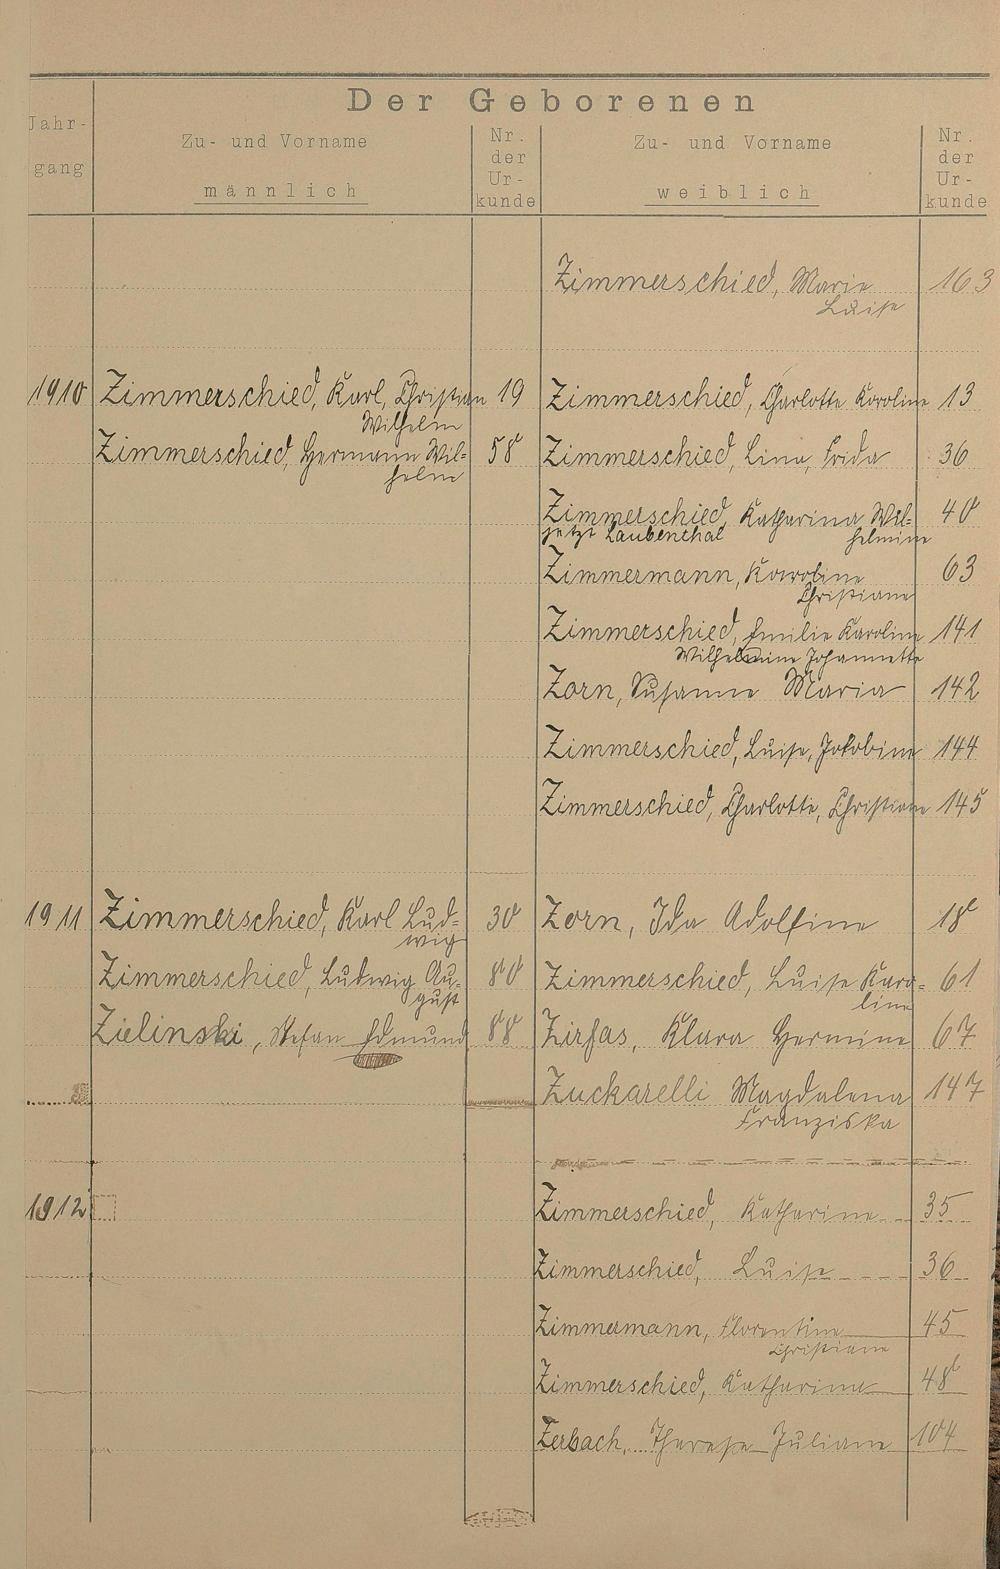 Der Geborenen
Jahr-
gang
Zu- und Vorname
männlich
Nr.
der
Ur-
kunde
Zu- und Vorname
weiblich
Nr.
der
Ur-
kunde
Zimmerschied, Marie 163
Luise
1910 Zimmerschied, Karl, Christian 19 Zimmerschied, Charlotte Karoline 13
Wilhelm
Zimmerschied, Hermann Wil- 58 Zimmerschied, Lina, Frida 36
helm
Zimmerschied, Katharina Wil- 40
jetzt Laubenthal helmine
Zimmermann, Karoline 63
Christiane
Zimmerschied, Emilie Karoline 141
Wilhelmine Johannette
Zorn, Susanne Maria 142
Zimmerschied, Luise, Jakobine 144
Zimmerschied, Charlotte, Christiane 145
1911 Zimmerschied, Karl Lud- 30 Zorn, Ida Adolfine 18
wig
Zimmerschied, Ludwig Au- 80 Zimmerschied, Luise Karo- 61
gust line
Zielinski, Stefan Edmund 88 Zirfas, Klara Hermine 67
Zuckarelli Magdalena 147
Franziska
1912 Zimmerschied, Katharine 35
Zimmerschied, Luise 36
Zimmermann, Florentine 45
Christiane
Zimmerschied, Katharina 48
Zerbach, Therese Juliane 104